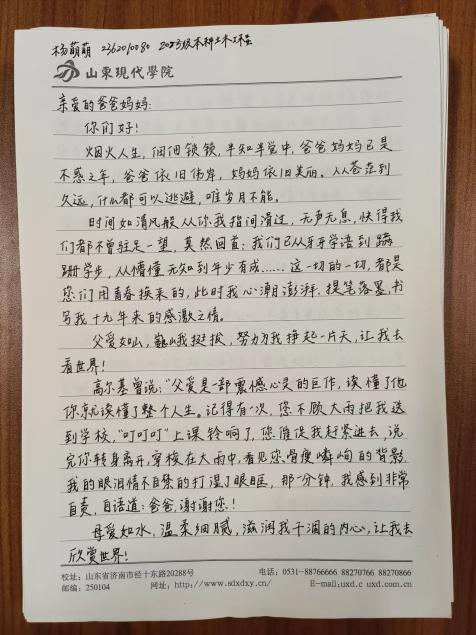 杨萌萌 2362010080 2023级本科土木工程
山東現代學院
亲爱的爸爸妈妈:
你们好!
烟火人生,细细锁锁,半知半觉中,爸爸妈妈已是
不惑之年,爸爸依旧伟岸,妈妈依旧美丽。从苍茫到
久远,什么都可以逃避,唯岁月不能。
时间如清风般从你我指间滑过,无声无息,快得我
们都不曾驻足一望,莫然回首:我们已从牙牙学语到蹒
跚学步,从懵懂无知到年少有成……这一切的一切,都是
您们用青春换来的,此时我心潮澎湃,提笔落墨,书
写我十九年来的感激之情。
父爱如山,巍峨挺拔,努力为我挣起一片天,让我去
看世界!
高尔基曾说:“父爱是一部震憾心灵的巨作,读懂了他
你就读懂了整个人生。记得有一次,您不顾大雨把我送
到学校,“叮叮叮”上课铃响了,您催促我赶紧进去,说
完你转身离开,穿梭在大雨中,看见您骨瘦嶙峋的背影
我的眼泪情不自禁的打湿了眼眶,那一分钟,我感到非常
自责,自语道:爸爸,谢谢您!
母爱如水,温柔细腻,滋润我干涸的内心,让我去
欣赏世界!
校址:山东省济南市经十东路20288号 电话:0531-88766666 88770866 88270866
邮编:250104 网址:http://www.sdxdxy.cn/ E-mail:uxd.c uxd.cn